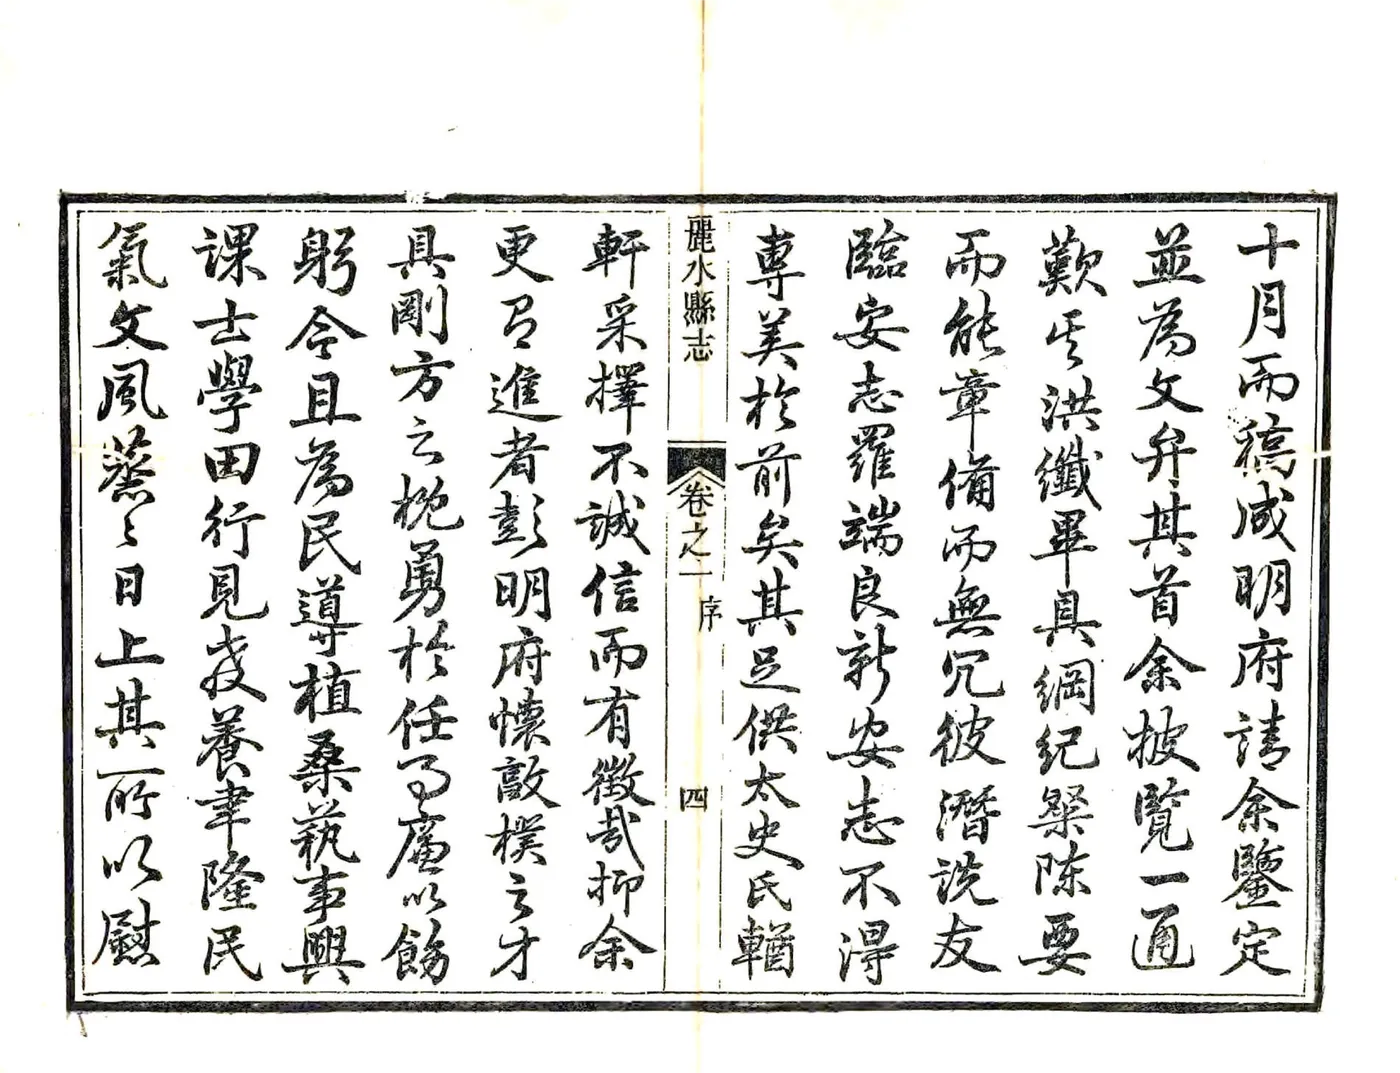 十月而稿成明府請余鑒定
並為文弁其首余披覽一通
歎其洪纖畢具綱紀粲陳要
而能章備而無冗彼潛說友
臨安志羅端良新安志不得
專美於前矣其足供太史氏輶
麗水縣志
卷之一
序
四
軒采擇不誠信而有徵哉抑余
更有進者彭明府懷敦樸之才
具剛方之概勇於任事廉以飭
躬今且為民導植桑蓺事興
課士學田行見教養聿隆民
氣文風蒸〻日上其所以慰